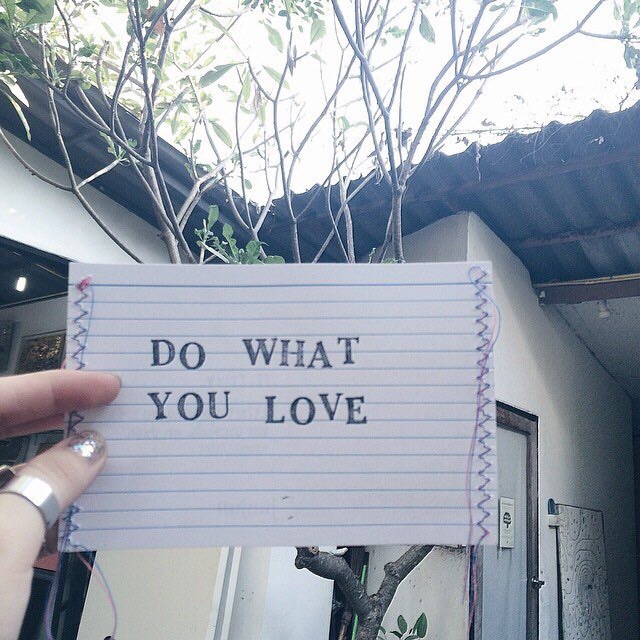 DO WHAT
YOU LOVE